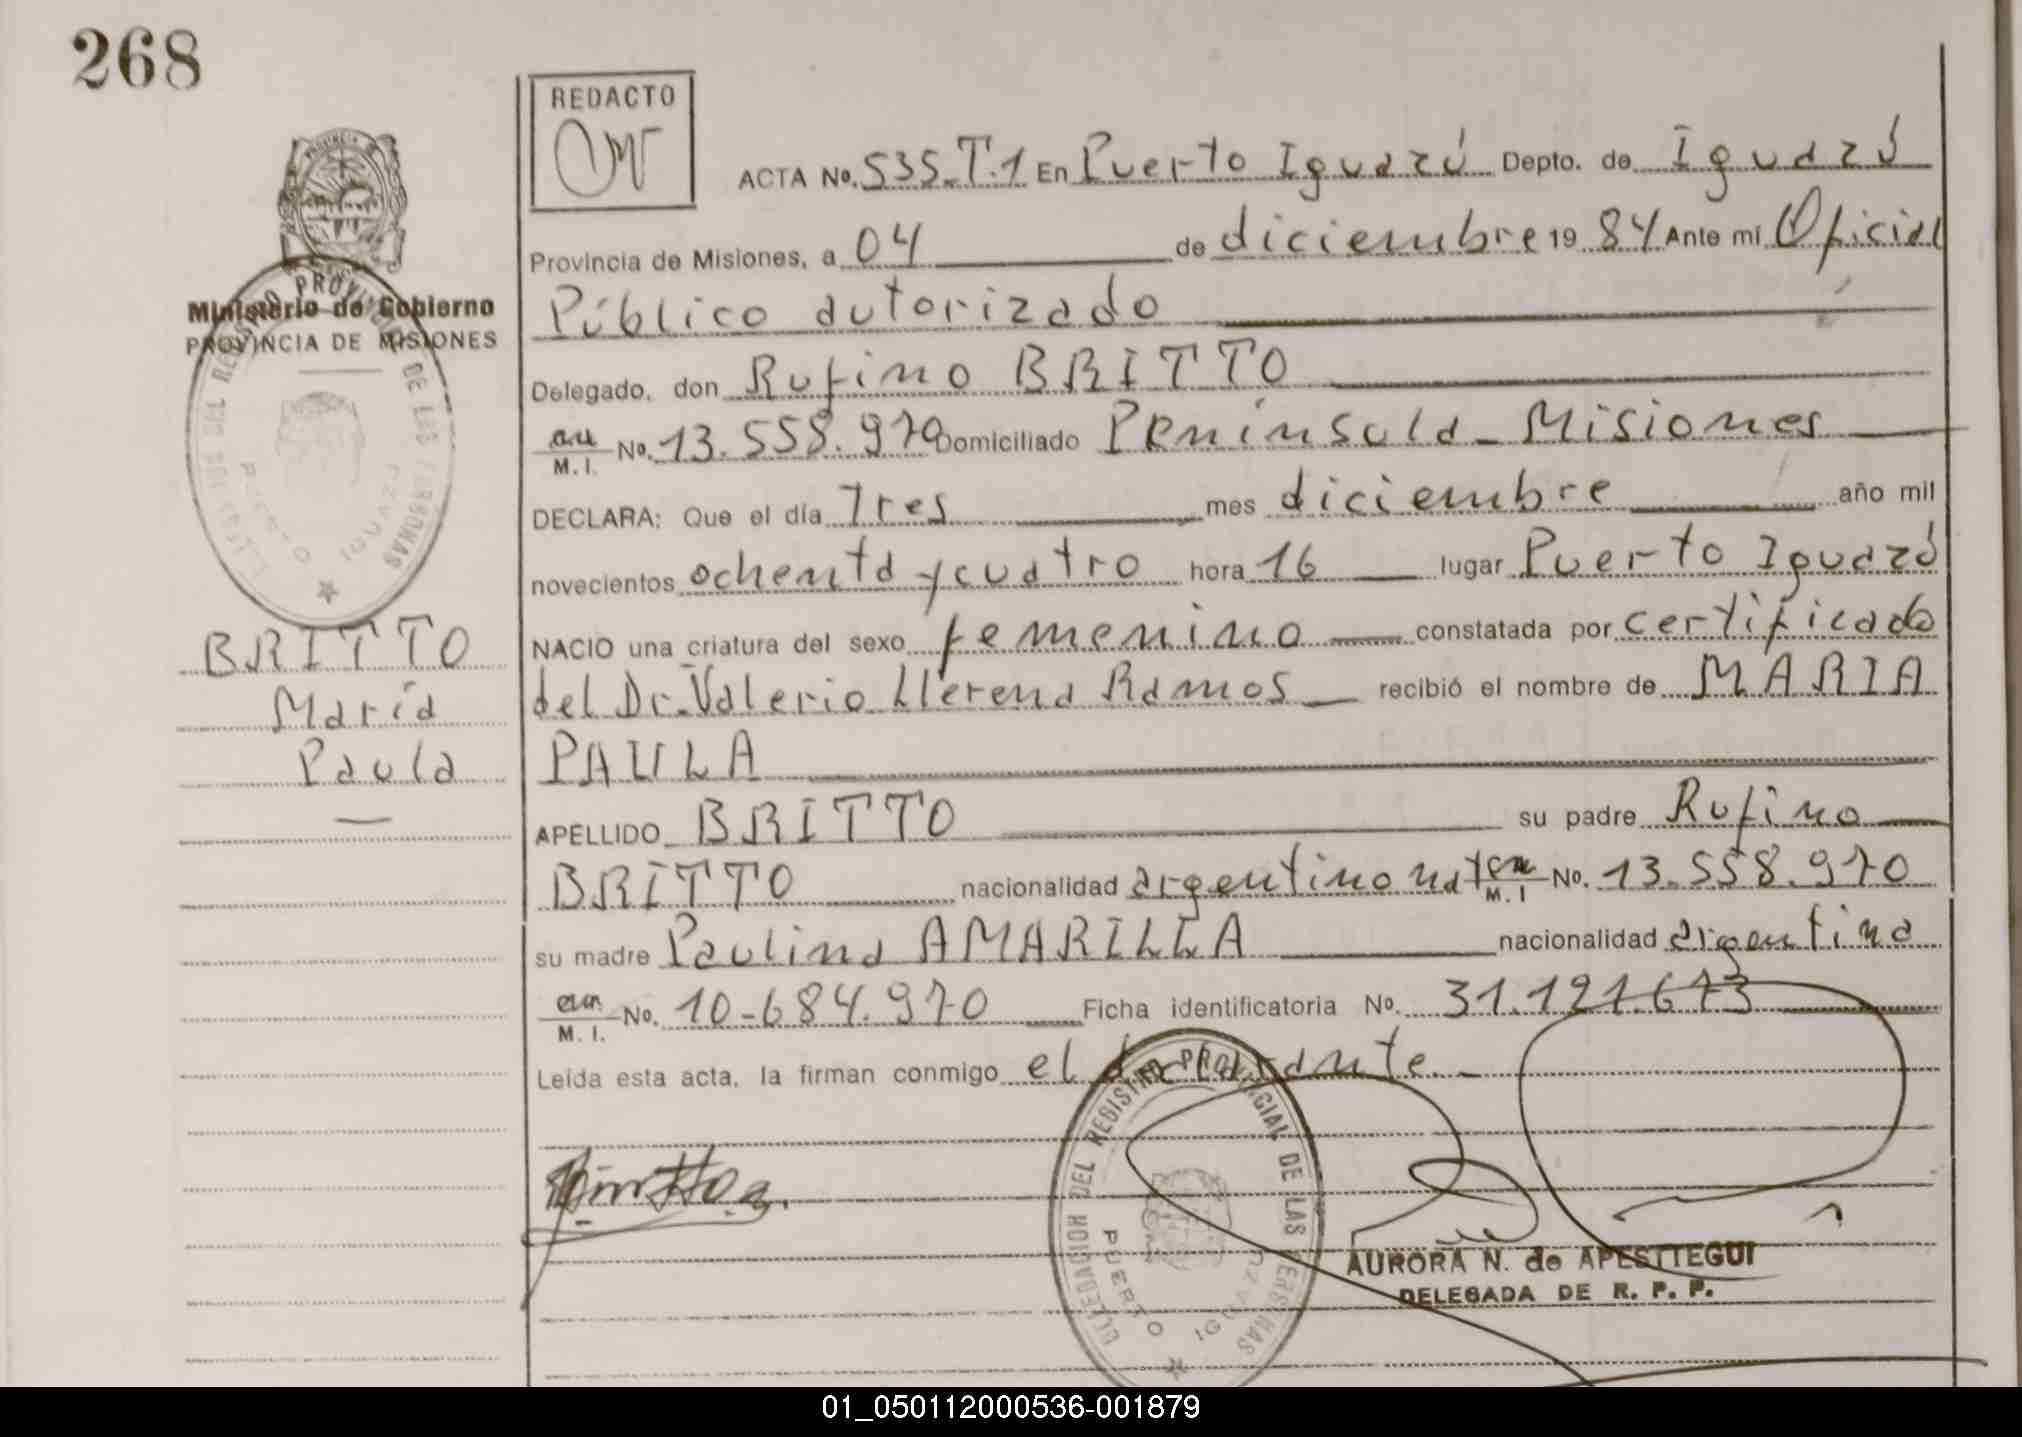 268
REDACTO
ACTA No. 535-T.1 En Puerto Iguazú Depto. de Iguazú
Provincia de Misiones, a 04 de diciembre 19 84 Ante mí Oficial
Público autorizado
Ministerio de Gobierno
PROVINCIA DE MISIONES
Delegado, don Rufino BRITTO
M. I. No. 13.558.970 Domiciliado Península - Misiones
DECLARA: Que el día Tres mes diciembre año mil
novecientos ochenta y cuatro hora 16 lugar Puerto Iguazú
NACIO una criatura del sexo femenino constatada por certificado
del Dr. Valerio Llerena Ramos recibió el nombre de MARIA
PAULA
BRITTO
María
Paula
APELLIDO BRITTO su padre Rufino
BRITTO nacionalidad argentino nat M. I No. 13.558.970
su madre Paulina AMARILLA nacionalidad argentina
M. I. No. 10-684.970 Ficha identificatoria No. 31.121.673
Leída esta acta, la firman conmigo el declarante.
DELEGACION DEL REGISTRO PROVINCIAL DE LAS PERSONAS
PUERTO IGUAZU
DELEGACION DEL REGISTRO PROVINCIAL DE LAS PERSONAS
PUERTO IGUAZU
AURORA N. de APESTTEGUI
DELEGADA DE R. P. P.
01_050112000536-001879